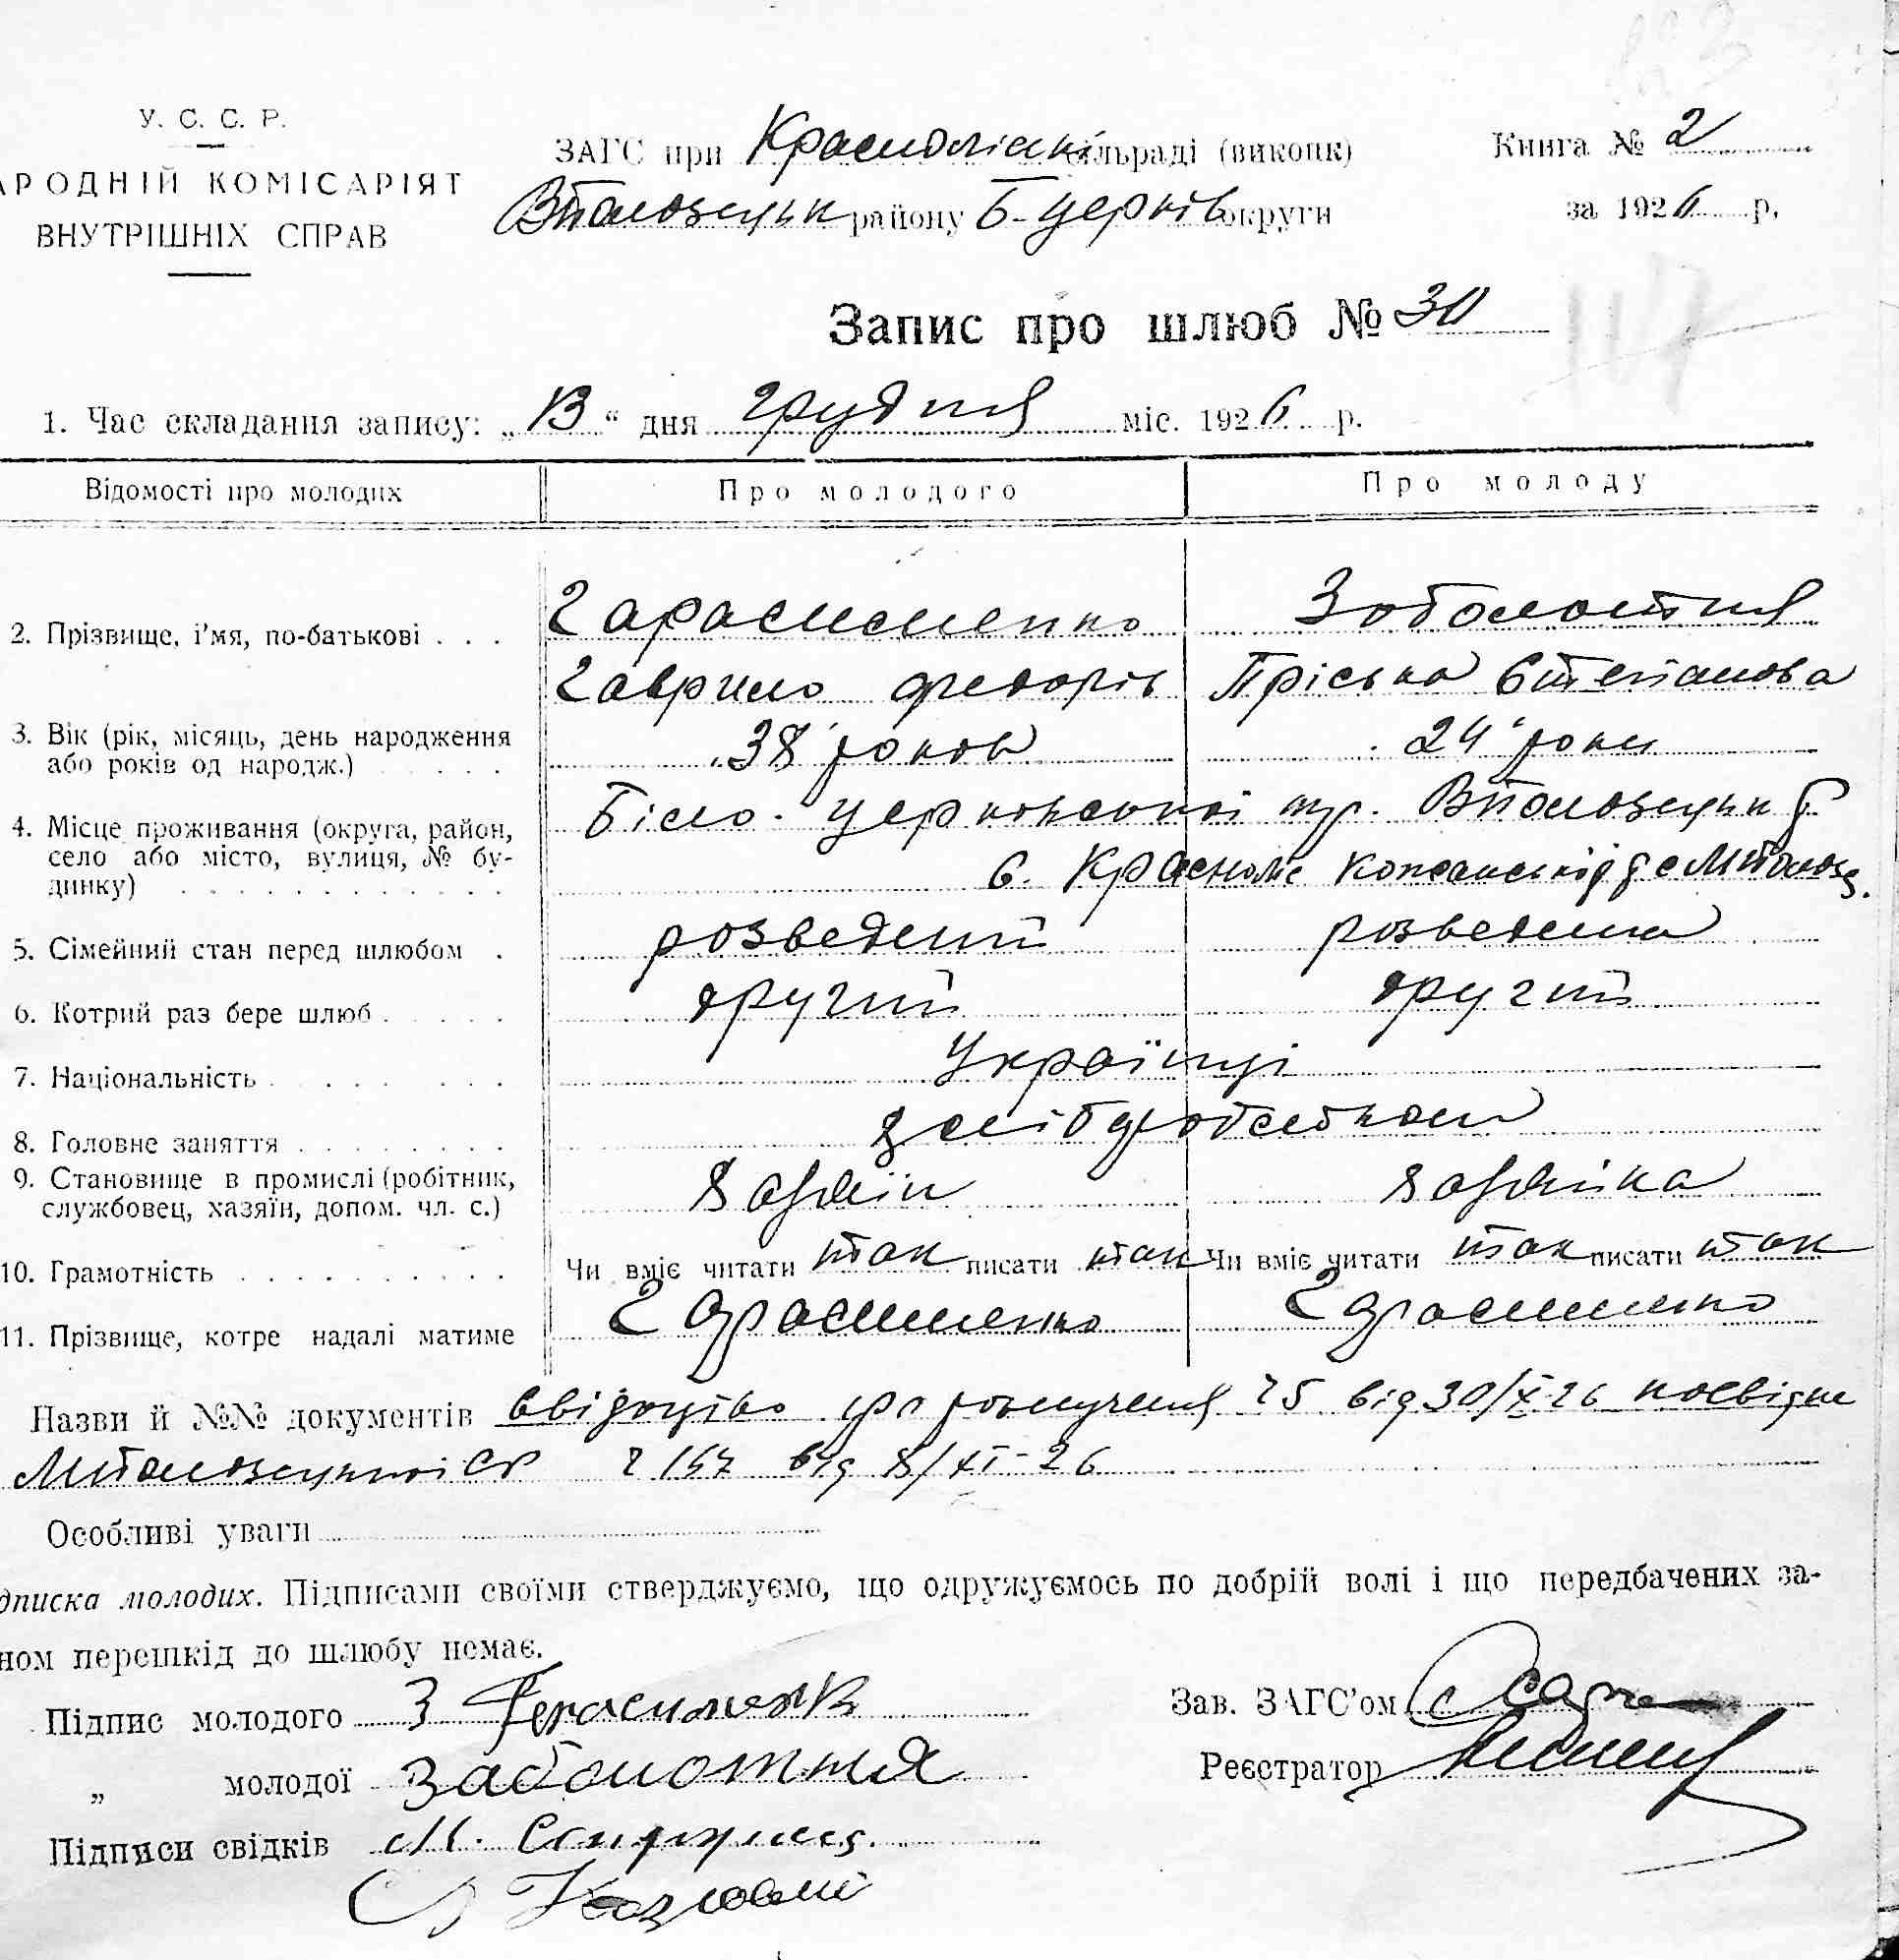 У. С. С. Р.
АРОДНІЙ КОМІСАРІЯТ
ВНУТРІШНІХ СПРАВ
ЗАГС при Красноліськ сільраді (виконк)
району Б-церків округи
Книга № 2
за 1926 р.
Запис про шлюб № 30
1. Час складання запису: „13“ дня грудня міс. 1926 р.
Відомості про молодих Про молодого Про молоду
2. Прізвище, і'мя, по-батькові . . . Гарасименко Заболотня
Гаврило Федорів Пріська Степанова
3. Вік (рік, місяць, день народження 38 років 24 роки
або років од народж.) . . . . .
4. Місце проживання (округа, район, Біло-церковської
село або місто, вулиця, № бу- с.
динку) . . . . . . . . . . . .
5. Сімейний стан перед шлюбом . розведений розведена
6. Котрий раз бере шлюб . . . . . другий другий
7. Національність . . . . . . . Українці
8. Головне заняття . . . . . . . .
9. Становище в промислі (робітник, хазяїн хазяйка
службовец, хазяїн, допом. чл. с.)
10. Грамотність . . . . . . . . . . Чи вміє читати так писати так Чи вміє читати так писати так
11. Прізвище, котре надалі матиме Гарасименко Гарасименко
Назви й №№ документів свідоцтво про розлучення 25 від 30/X-26 посвідк
ч 157 від 8/XI-26
Особливі уваги
дписка молодих. Підписами своїми стверджуємо, що одружуємось по добрій волі і що передбачених за-
ном перешкід до шлюбу немає.
Підпис молодого Герасименк
Зав. ЗАГС'ом
„ молодої Заболотня
Реєстратор
Підписи свідків М.